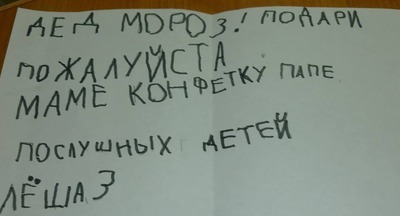 ДЕД МОРОЗ! ПОДАРИ
ПОЖАЛУЙСТА
МАМЕ КОНФЕТКУ ПАПЕ
ПОСЛУШНЫХ ДЕТЕЙ
ЛЁША З